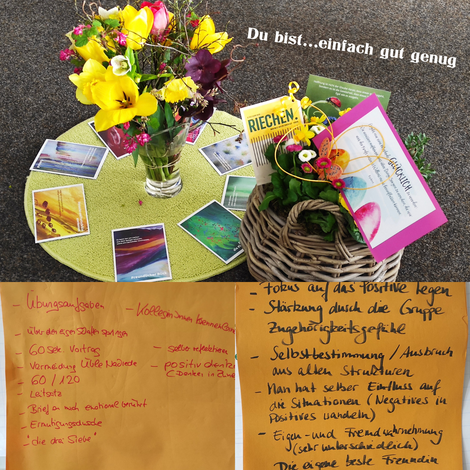 Du bist...einfach gut genug
RIECHEN.
GLÜCKLICH
- Übungsaufgaben
- Kolleginnen kennenlernen
- Über den eigen Schatten springen
- 60 Sek. Vortrag
- selbst reflektieren
- Vermeidung Üble Nachrede
- positiv denken
- 60 / 120
- Leitsatz
- Brief an mich emotional berührt
- Ermutigungsdusche
- "die drei Siebe"
- Fokus auf das Positive legen
- Stärkung durch die Gruppe
Zugehörigkeitsgefühle
- Selbstbestimmung / Ausbruch
aus alten Strukturen
- Man hat selber Einfluss auf
die Situationen (Negatives in
Positives wandeln)
- Eigen- und Fremdwahrnehmung
(sehr unterschiedlich)
- Die eigene beste Freundin